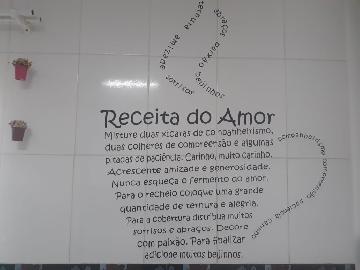 abraços
paixão
beijinhos
sorrisos
Receita do Amor
Misture duas xícaras de companheirismo,
duas colheres de compreensão e algumas
pitadas de paciência. Carinho, muito carinho.
Acrescente amizade e generosidade.
Nunca esqueça o fermento do amor.
Para o recheio coloque uma grande
quantidade de ternura e alegria.
Para a cobertura distribua muitos
sorrisos e abraços. Decore
com paixão. Para finalizar
adicione muitos beijinhos.
companheirismo compreensão paciência carinho